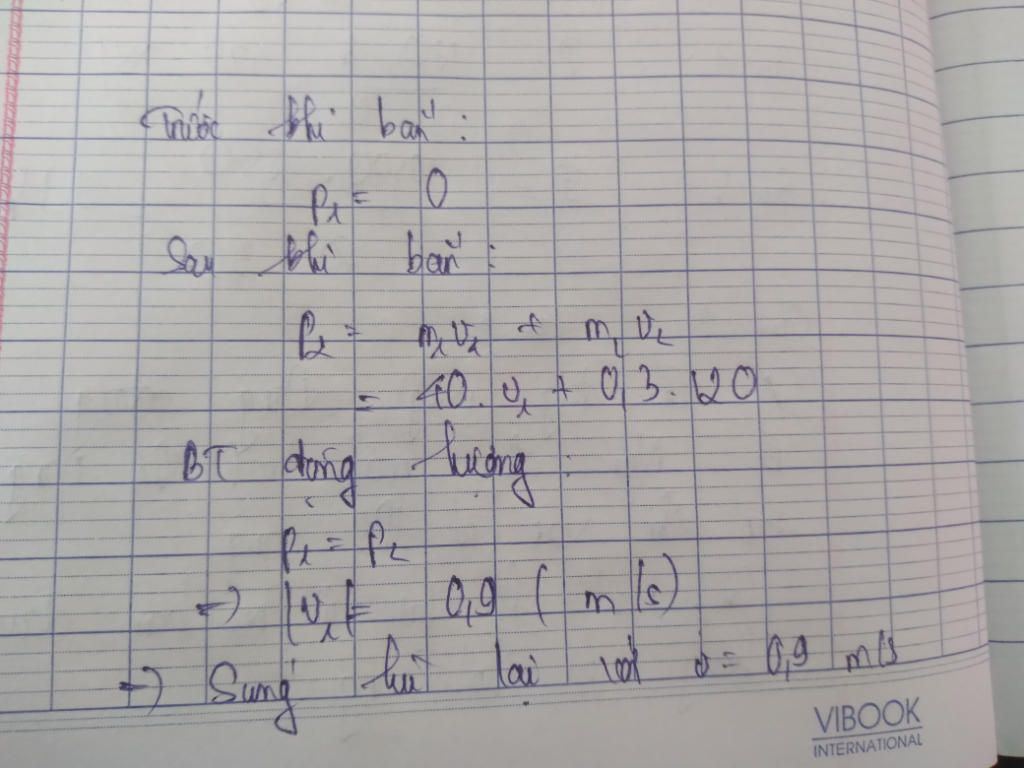 Trước khi bắn :
P₁ = 0
Sau khi bắn :
P₂ = m₁v₁ + m₂v₂
= 40. v₁ + 0,3. 120
BT động lượng :
P₁ = P₂
→ |v₁| = 0,9 (m/s)
→ Súng lùi lại với v = 0,9 m/s
VIBOOK
INTERNATIONAL